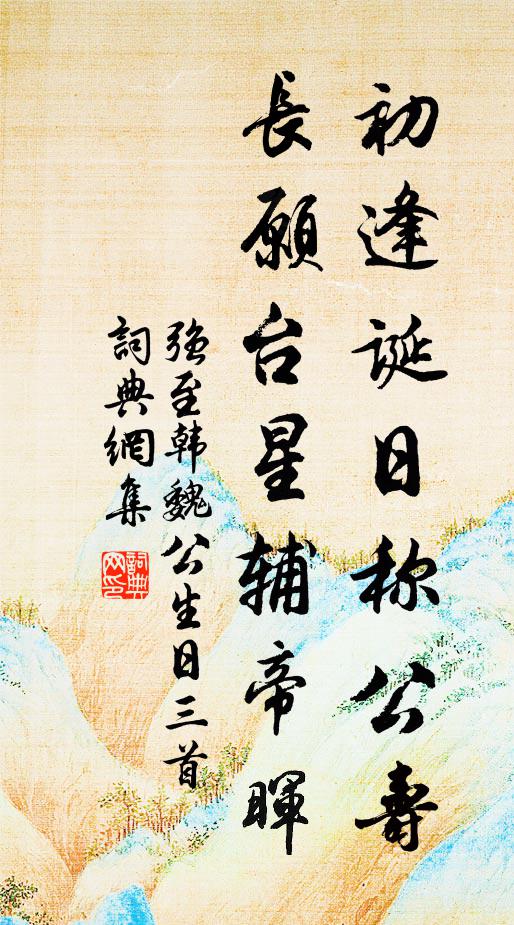 初逢诞日称公壽
長願台星辅帝暉
强至韩魏公生日三首
詞典網集
詞典网印